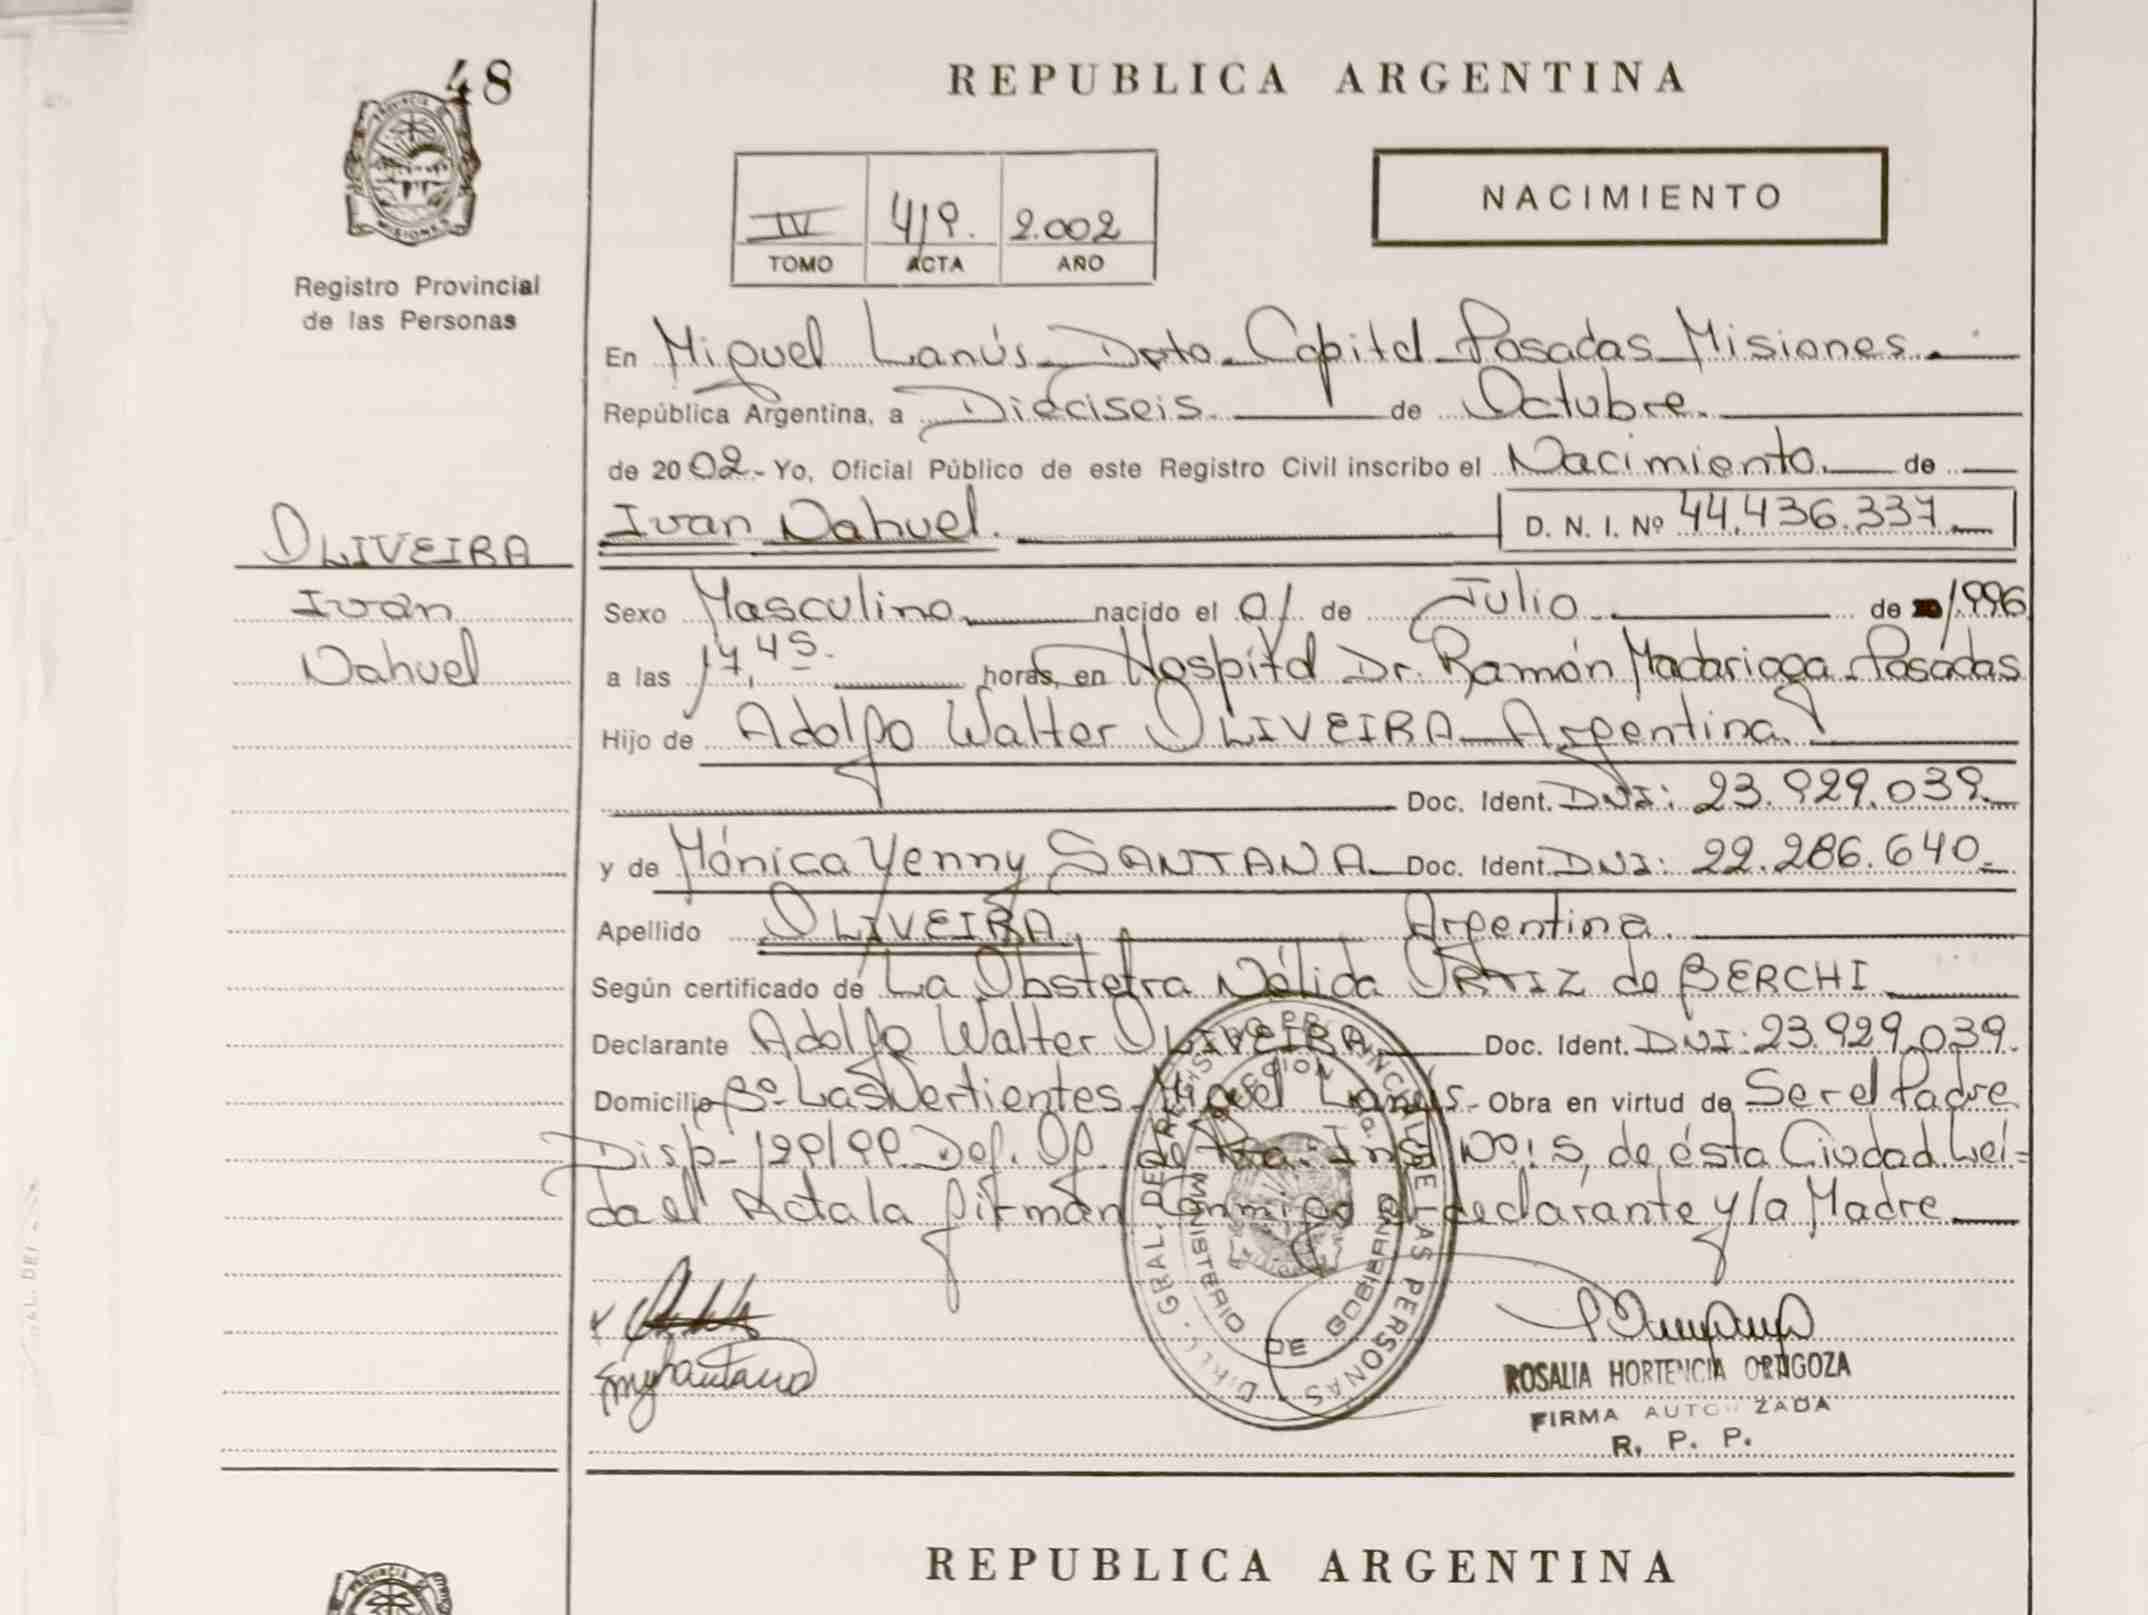 48
REPUBLICA ARGENTINA
NACIMIENTO
IV 419. 2.002
TOMO ACTA AÑO
Registro Provincial
de las Personas
En Miguel Lanús Dpto. Capital Posadas Misiones.
República Argentina, a Dieciseis. de Octubre.
de 2002.- Yo, Oficial Público de este Registro Civil inscribo el Nacimiento. de
Ivan Nahuel. D. N. I. Nº 44.436.337.
OLIVEIRA
Iván
Nahuel
Sexo Masculino nacido el 01 de Julio de 1996
a las 17,45. horas, en Hospital Dr. Ramón Madariaga Posadas
Hijo de Adolfo Walter OLIVEIRA Argentina.
Doc. Ident. DNI: 23.929.039.
y de Mónica Yenny SANTANA Doc. Ident. DNI: 22.286.640.
Apellido OLIVEIRA, Argentina.
Según certificado de La Obstetra Nélida ORTIZ de BERCHI
Declarante Adolfo Walter OLIVEIRA Doc. Ident. DNI: 23.929.039.
Domicilio Bº Las Vertientes Miguel Lanús. Obra en virtud de Ser el Padre
Disp- 129/99. Def. Of. de Inst Nº: 5, de ésta Ciudad. Leí=
da el Acta la firman Conmigo el declarante y la Madre
DIREC. GRAL. DEL REGISTRO PROVINCIAL DE LAS PERSONAS
MINISTERIO DE GOBIERNO
ROSALIA HORTENCIA ORTIGOZA
FIRMA AUTORIZADA
R. P. P.
REPUBLICA ARGENTINA